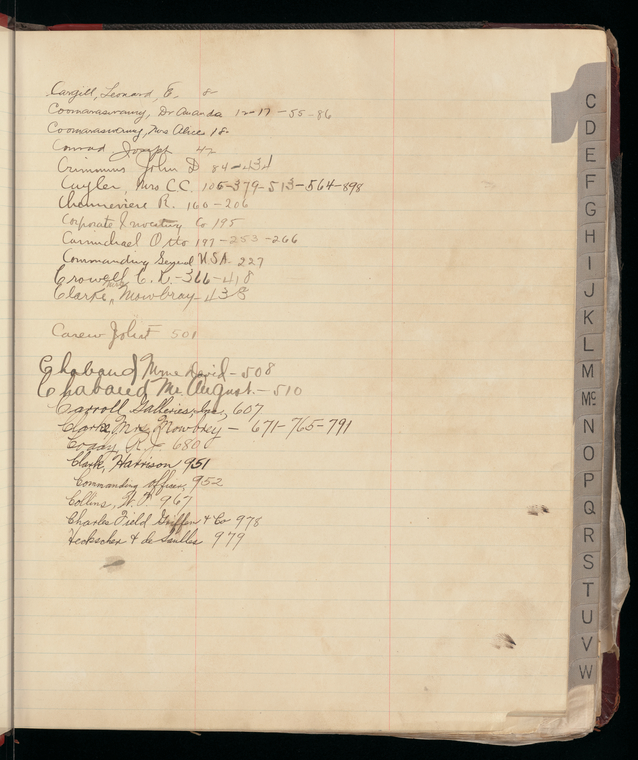 Cargill, Leonard, E. 8
Coomaraswamy, Dr Ananda 12-17-55-86
Coomaraswamy, Mrs Alice 18
Conrad Joseph 42
Crimmins John D 84-434
Cuyler, Mrs C.C. 106-379-513-564-898
R. 160-206
Corporate Investing Co 195
Carmichael Otto 197-253-266
Commanding General USA. 227
Crowell C. L.-366-418
Clarke, Mrs Mowbray 438
Carew Joliet 501
Chabaud Mme David-508
Chabaud Me August.-510
Carroll Galleries, Inc, 607
Clarke, Mrs. Mowbrey - 671-765-791
R.J. 680
Clark, Harrison 951
Commanding officer, 952
Collins, W. F. 967
Charles Field Griffen & Co 978
Heckscher & de Saulles 979
C
D
E
F
G
H
I
J
K
L
M
Mc
N
O
P
Q
R
S
T
U
V
W